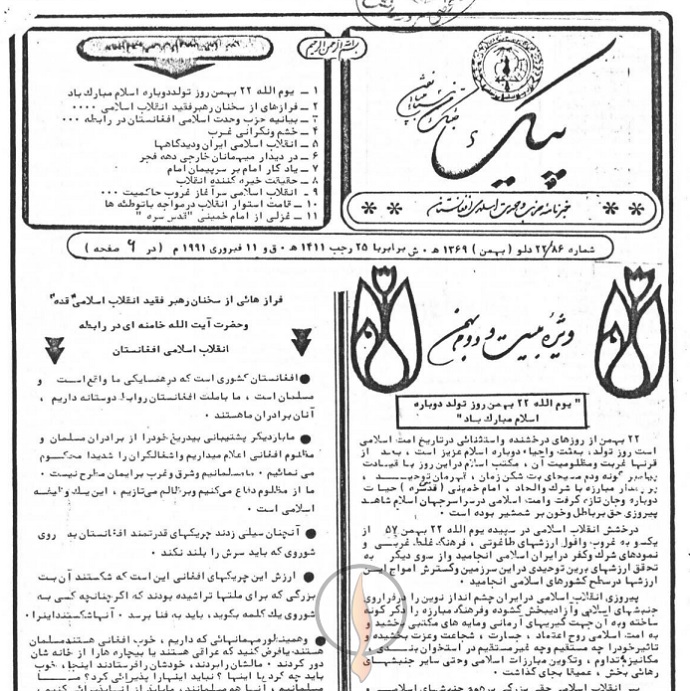 بسم الله الرحمن الرحیم
پیک
خبرنامه حزب وحدت اسلامی افغانستان
۱ ــ یوم الله ۲۲ بهمن روز تولددوباره اسلام مبارك باد
۲ ــ فرازهای از سخنان رهبرفقید انقلاب اسلامی ۰۰۰۰
۳ ــ بیانیه حزب وحدت اسلامی افغانستان در رابطه ۰۰۰
۴ ــ خشم ونگرانی غرب
۵ ــ انقلاب اسلامی ایران ودیدگاهها
۶ ــ در دیدار میهمانان خارجی دهه فجر
۷ ــ یاد کار امام بر سرپیمان امام
۸ ــ حقیقت خیره کننده انقلاب
۹ ــ انقلاب اسلامی سرآغاز غروب حاکمیت ۰۰۰
۱۰ ــ قامت استوار انقلاب درمواجه باتوطئه ها
۱۱ ــ غزلی از امام خمینی "قدس سره "
شماره ۲۲/۸۶ دلو ( بهمن ) ۱۳۶۹ ه ۰ ش برابربا ۲۵ رجب ۱۴۱۱ ه ۰ ق و ۱۱ فبروری ۱۹۹۱ م ( در ۶ صفحه )
ویژه بیست و دوم بهمن
" یوم الله ۲۲ بهمن روز تولد دوباره
اسلام مبارك باد "
۲۲ بهمن از روزهای درخشنده واستثنائی درتاریخ امت اسلامی
است روز تولد، بعثت واحیاء دوباره اسلام عزیز است ، بعد از
قرنها غربت ومظلومیت آن ، مکتب اسلام دراین روز با قیادت
پیامبر گونه ودم مسیحای بت شکن زمان ، قهرمان توحید ،
مبارزه با شرك والحاد ، امام خمینی ( قدسره ) حیات
دوباره وجان تازه گرفت وامت اسلامی درسراسرجهان اسلام شاهد
پیروزی حق برباطل وخون بر شمشیر بوده است ۰
درخشش انقلاب اسلامی در سپیده یوم الله ۲۲ بهمن ۵۷ از
یکسو به غروب وافول ارزشهای طاغوتی ، فرهنگ غلط غربی و
نمودهای شرك وکفر درایران اسلامی انجامید واز سوی دیگر به
تحقق ارزشهای برین توحیدی دراین سرزمین وگسترش امواج این
ارزشها درسطح کشورهای اسلامی انجامید ۰
پیروزی انقلاب اسلامی در ایران چشم انداز نوین را درفراروی
جنبشهای اسلامی وآزادیبخش کشوده وفرهنگ مبارزه را دگر گونه
ساخته وبه آن جهت گیریهای آرمانی ومایه های مکتبی بخشید و
به امت اسلامی روح اعتماد ، جسارت ، شجاعت وعزت بخشیده و
تاثیرخودرا چه مستقیم وچه غیرمستقیم در استخوان بندی ،
مکانیزم تداوم ، وتکوین مبارزات اسلامی وحتی سایر جنبشهای
رهائی بخش ، عمیقا بجای گذاشت ۰
فراز هائی از سخنان رهبر فقید انقلاب اسلامی "قده"
وحضرت آیت الله خامنه ای در رابطه
انقلاب اسلامی افغانستان
افغانستان کشوری است که درهمسایکی ما واقع است و
مسلمان است ، ما باملت افغانستان روابط دوستانه داریم ،
آنان برادران ماهستند ۰
ماباردیکر پشتیبانی بیدریغ خودرا از برادران مسلمان و
مظلوم افغانی اعلام میداریم واشغالگران را شدیدا محکوم
می نمائیم ۰ ما مسلمانیم وشرق وغرب برایمان مطرح نیست ۰
ما از مظلوم دفاع می‌کنیم وبرظالم می‌تازیم ، این یك وظیفه
اسلامی است ۰
آنچنان سیلی زدند چریکهای قدرتمند افغانستان به روی
شوروی که باید سرش را بلند نکند ۰
ارزش این چریکهای افغانی این است که شکستند آن بت
بزرگی که برای ملتها تراشیده بودند که اگرچنانچه کسی به
شوروی یك کلمه بکوید، باید به فنا برسد ۰ آنها شکستند اینرا ۰
وهمینطور مهمانهائی که داریم ، خوب افغانی هستند مسلمان
هستند یافرض کنید که عراقی هستند یا بیچاره هارا از خانه شان
دور کردند ۰ مالشان رابردند، خودشان رافرستادند اینجا، خوب
باید چه کرد با اینها ؟ نباید اینها را پذیرائی کرد؟